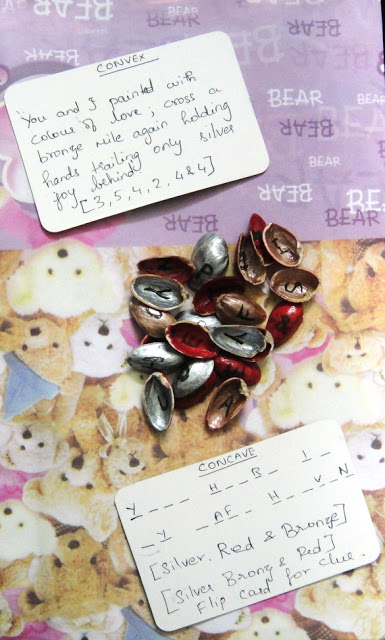 BEAR
BEAR
BEAR
BEAR
BEAR
BEAR
BEAR
BEAR
CONVEX
You and I painted with
colour of love; cross a
bronze mile again holding
hands trailing only silver
joy behind
[3, 5, 4, 2, 4 & 4]
P
S
L
A
CONCAVE
Y _ _ _ H _ B _ I _
_ Y _ AF _ H _ _ V _ N
[Silver, Red & Bronze]
[Silver Bronz & Red]
Flip card for clue.